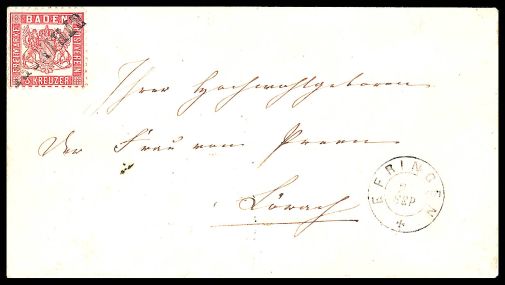 BADEN
FREIMARKE
POSTVEREIN
KREUZER
Ihrer Hochwohlgeboren
der Frau von
Lörach
EFRINGEN
SEP